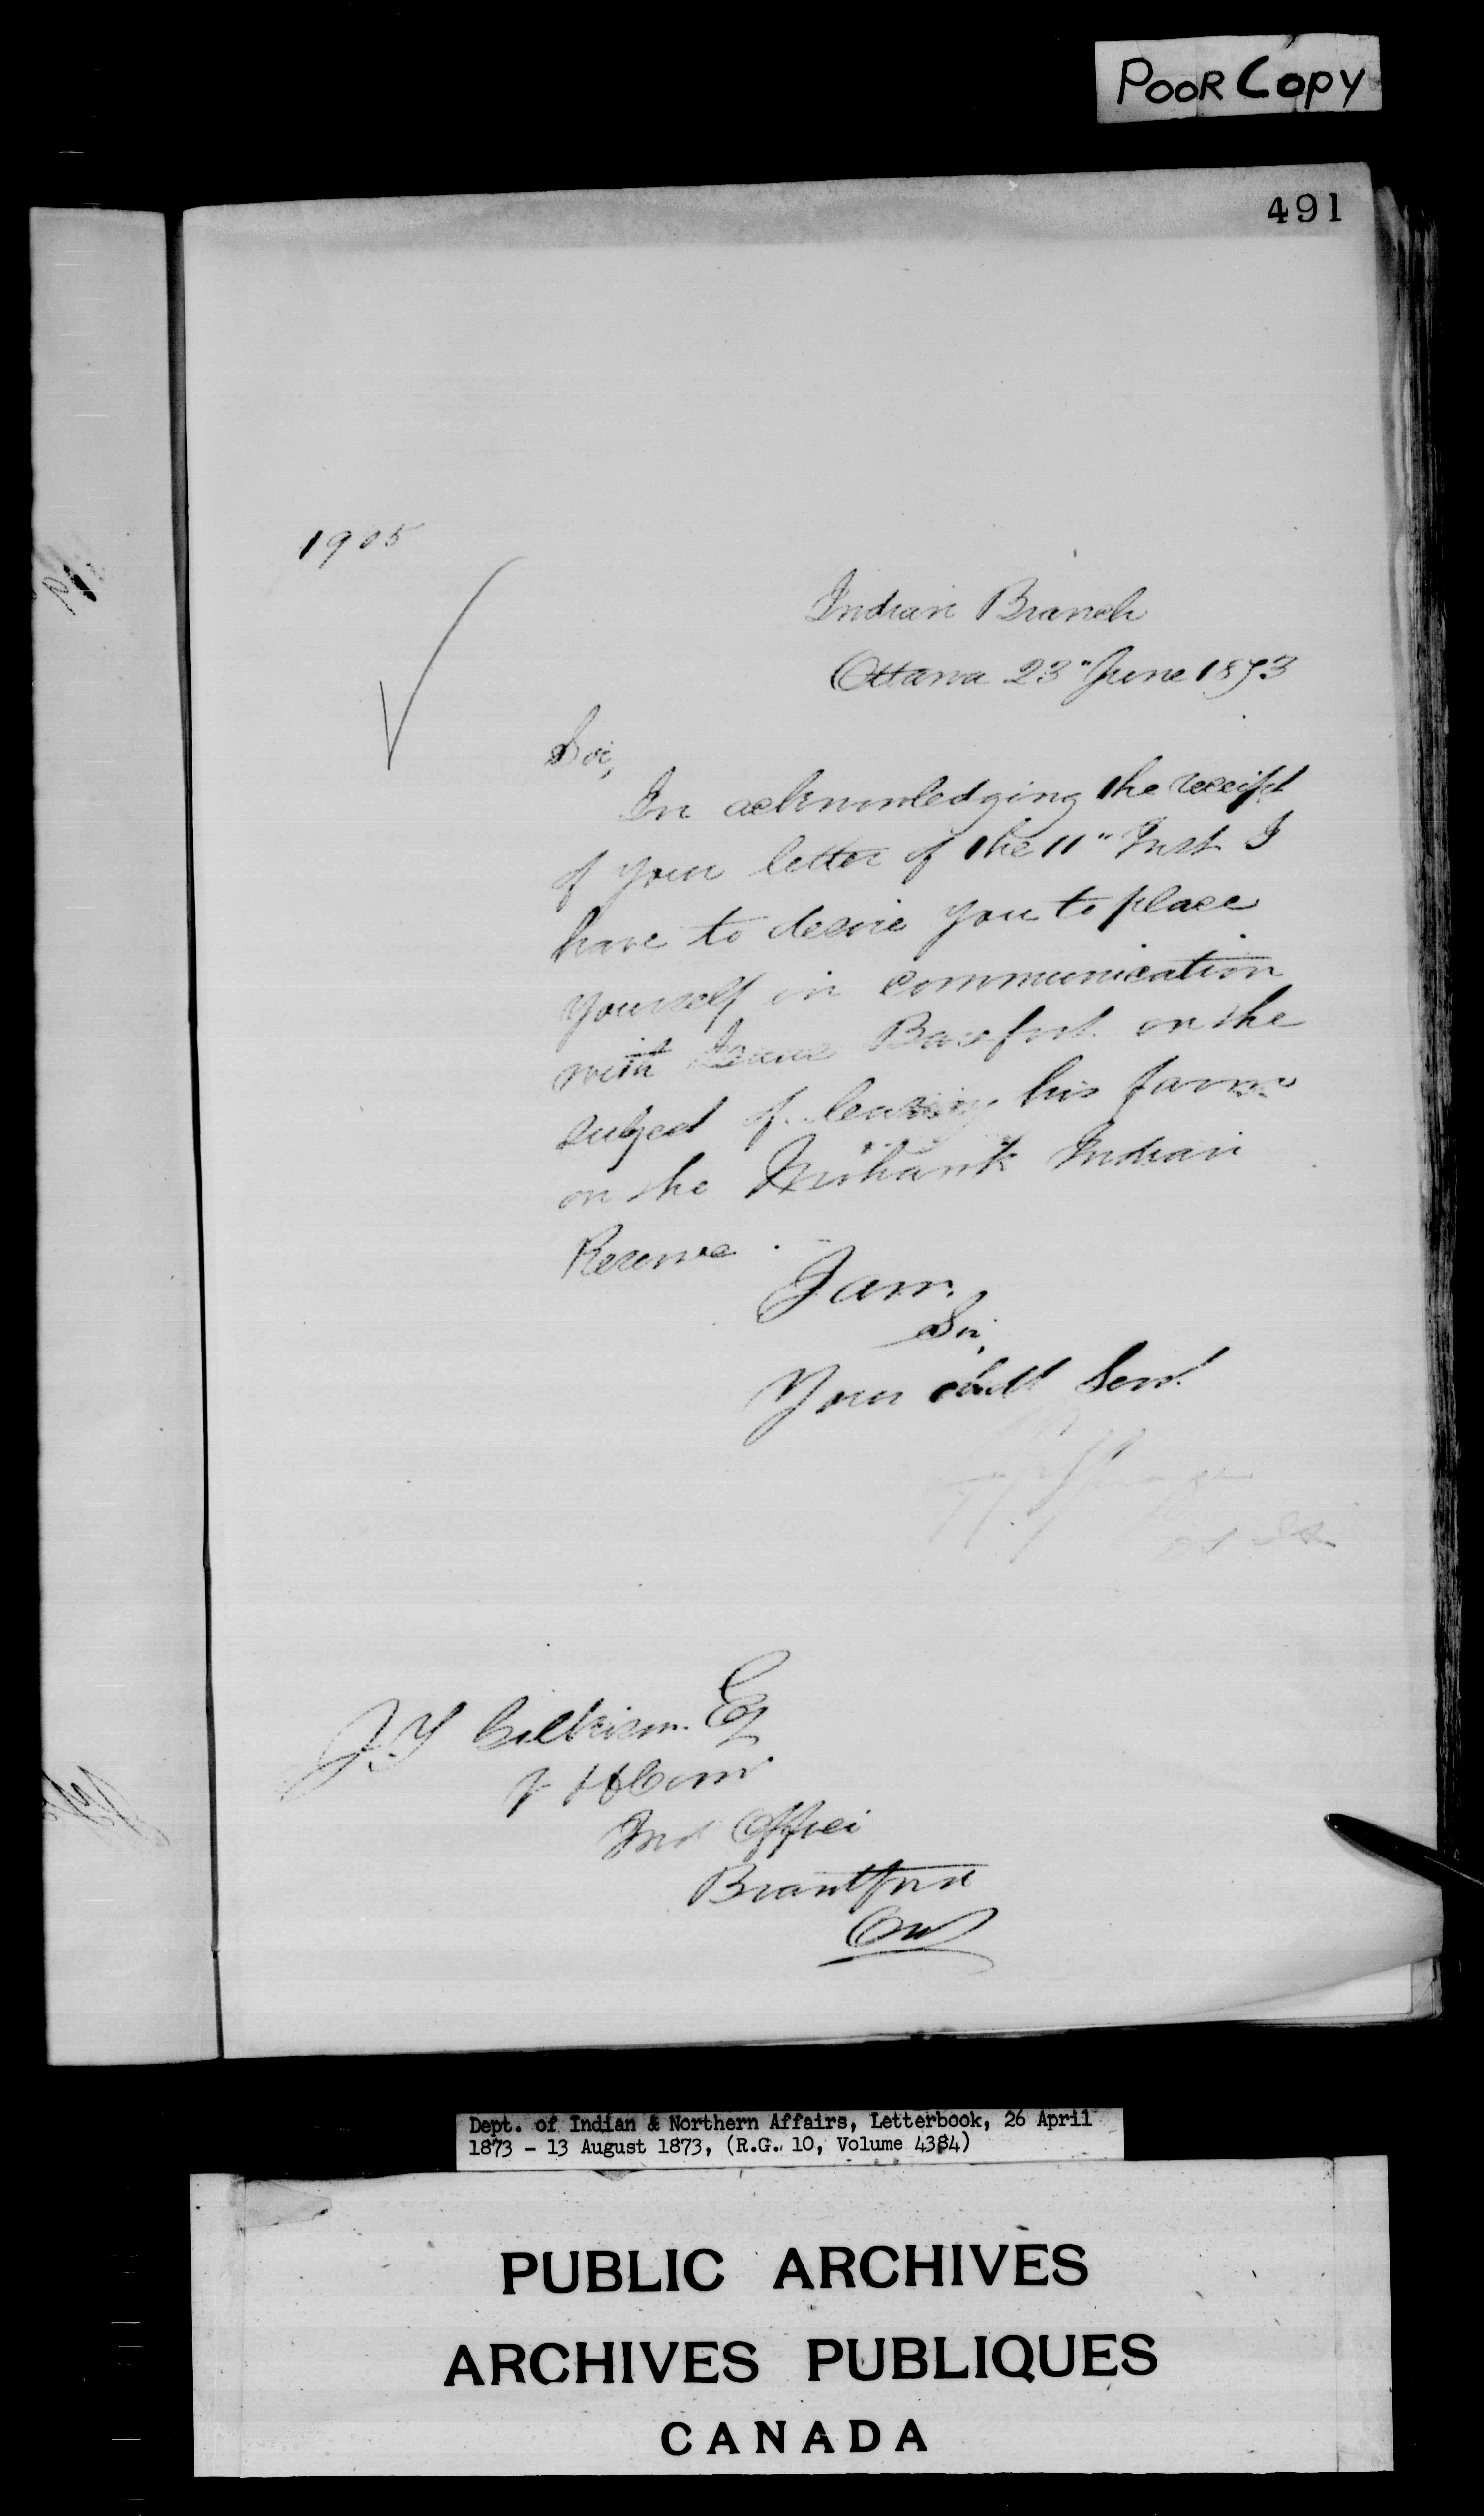 POOR COPY
491
1905
Indian Branch
Ottawa 23" June 1873
Sir,
In acknowledging the receipt
of your letter of the 11" Inst I
have to desire you to place
yourself in communication
with Isaac Barefoot on the
subject of leasing his farm
on the Mohawk Indian
Reserve.
I am.
Sir,
Your obedt Servt
J. T Gilkison. Esq
Ind Office
Brantford
Ont
Dept. of Indian & Northern Affairs, Letterbook, 26 April
1873 - 13 August 1873, (R.G. 10, Volume 4384)
PUBLIC ARCHIVES
ARCHIVES PUBLIQUES
CANADA